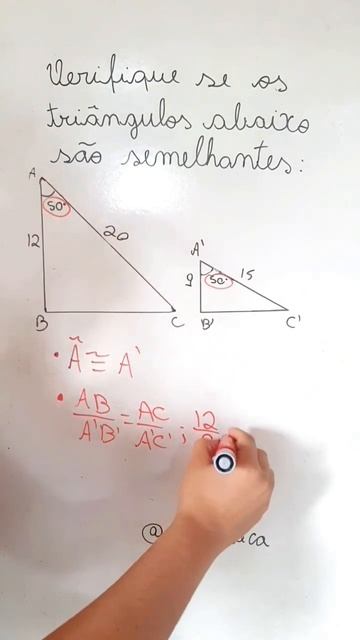 Verifique se os
triângulos abaixo
são semelhantes:
A
50°
12
20
B
C
A'
50°
9
15
B'
C'
• Â ≅ A'
• AB/A'B' = AC/A'C' ; 12
@